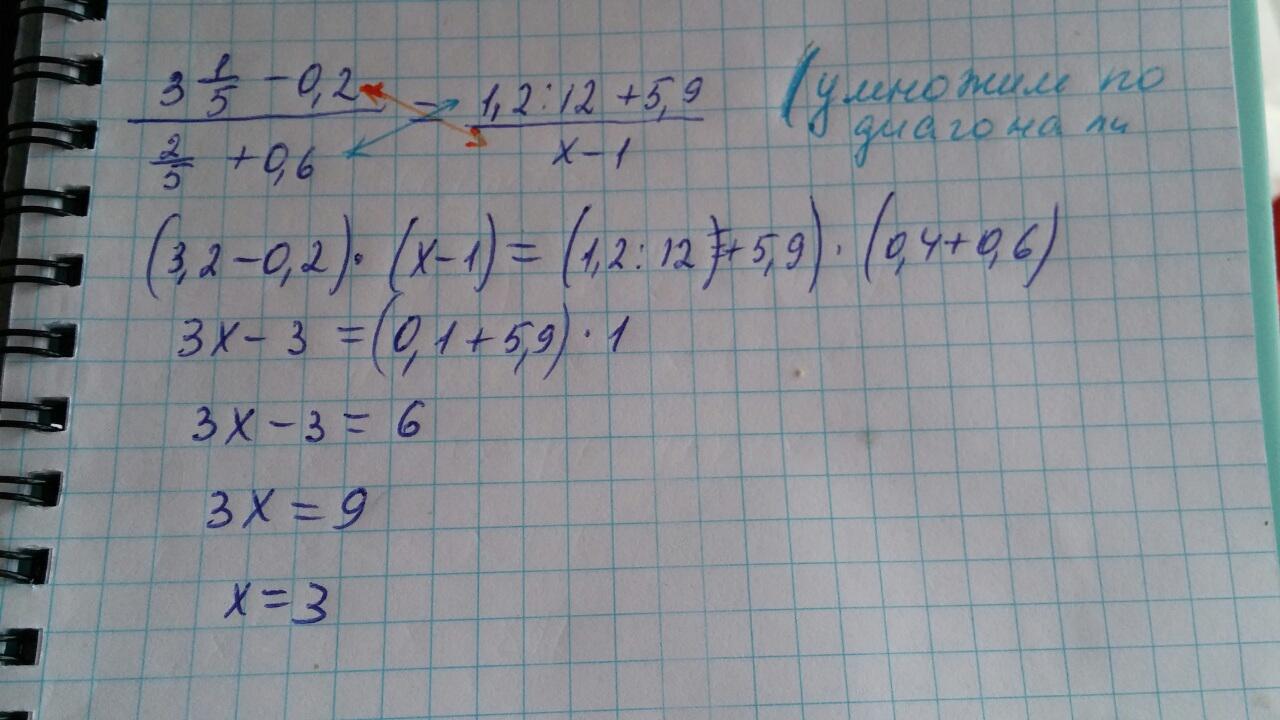 3 1/5 − 0,2 / 2/5 + 0,6 = 1,2 : 12 + 5,9 / x − 1 (умножим по
диагонали
(3,2 − 0,2) · (x − 1) = (1,2 : 12 + 5,9) · (0,4 + 0,6)
3x − 3 = (0,1 + 5,9) · 1
3x − 3 = 6
3x = 9
x = 3